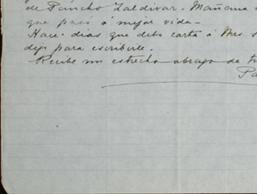 de Pancho Zaldivar. Mañana
que pasó a mejor vida.
Hace dias que debo carta á Mrs
dejo para escribirle.
Recibe un estrecho abrazo de tu
Pa